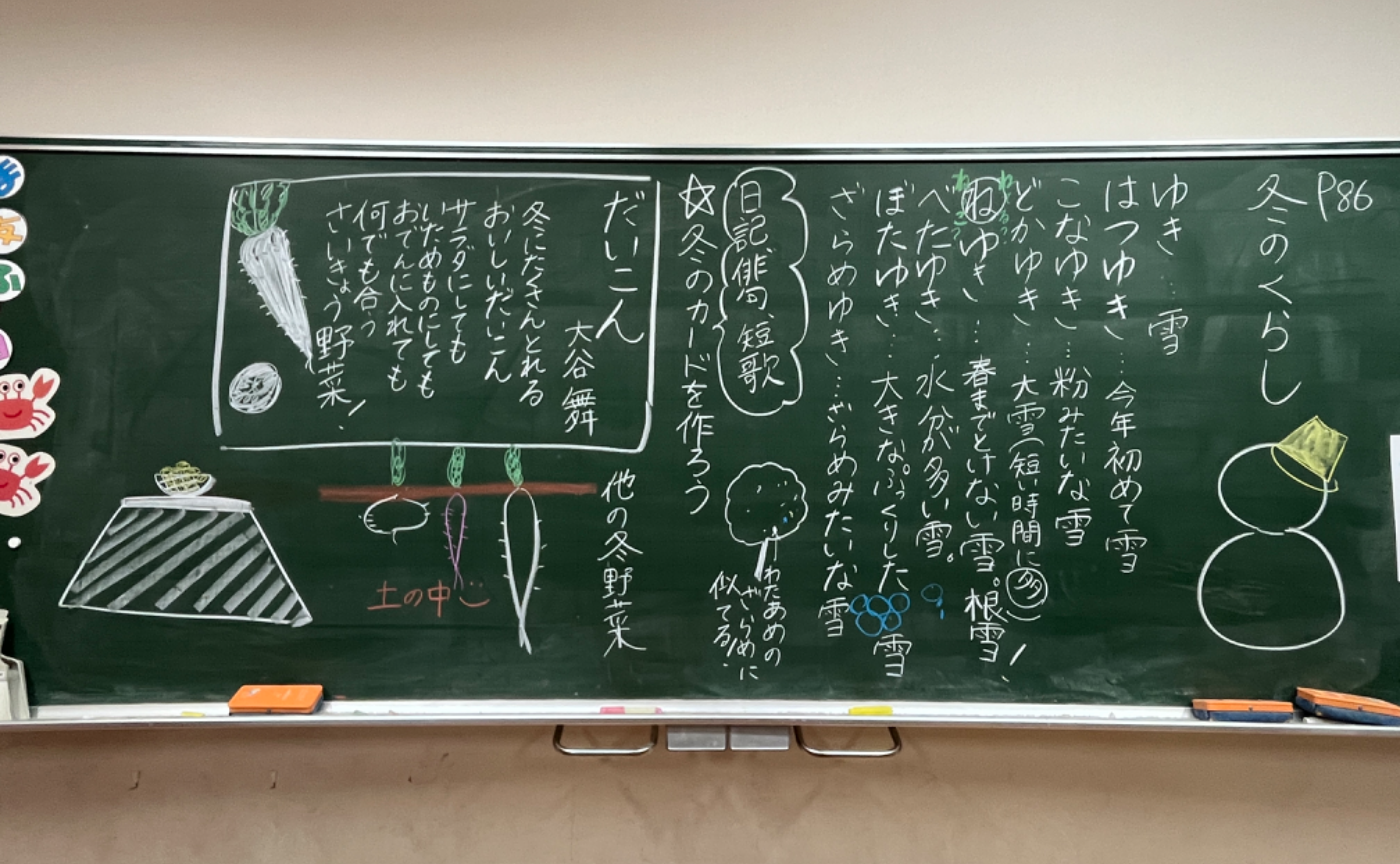 P86
冬のくらし
ゆき…雪
はつゆき…今年初めて雪
こなゆき…粉みたいな雪
どかゆき…大雪(短い時間に多)
ねゆき…春までとけない雪。根雪!
べたゆき…水分が多い雪。
ぼたゆき…大きな。ふっくりした雪
ざらめゆき…ざらめみたいな雪
わたあめの
ざらめに
似てる。
日記、俳句、短歌
☆冬のカードを作ろう
だいこん
大谷 舞
冬にたくさんとれる
おいしいだいこん
サラダにしても
いためものにしても
おでんに入れても
何でも合う
さいきょう野菜!
他の冬野菜
土の中